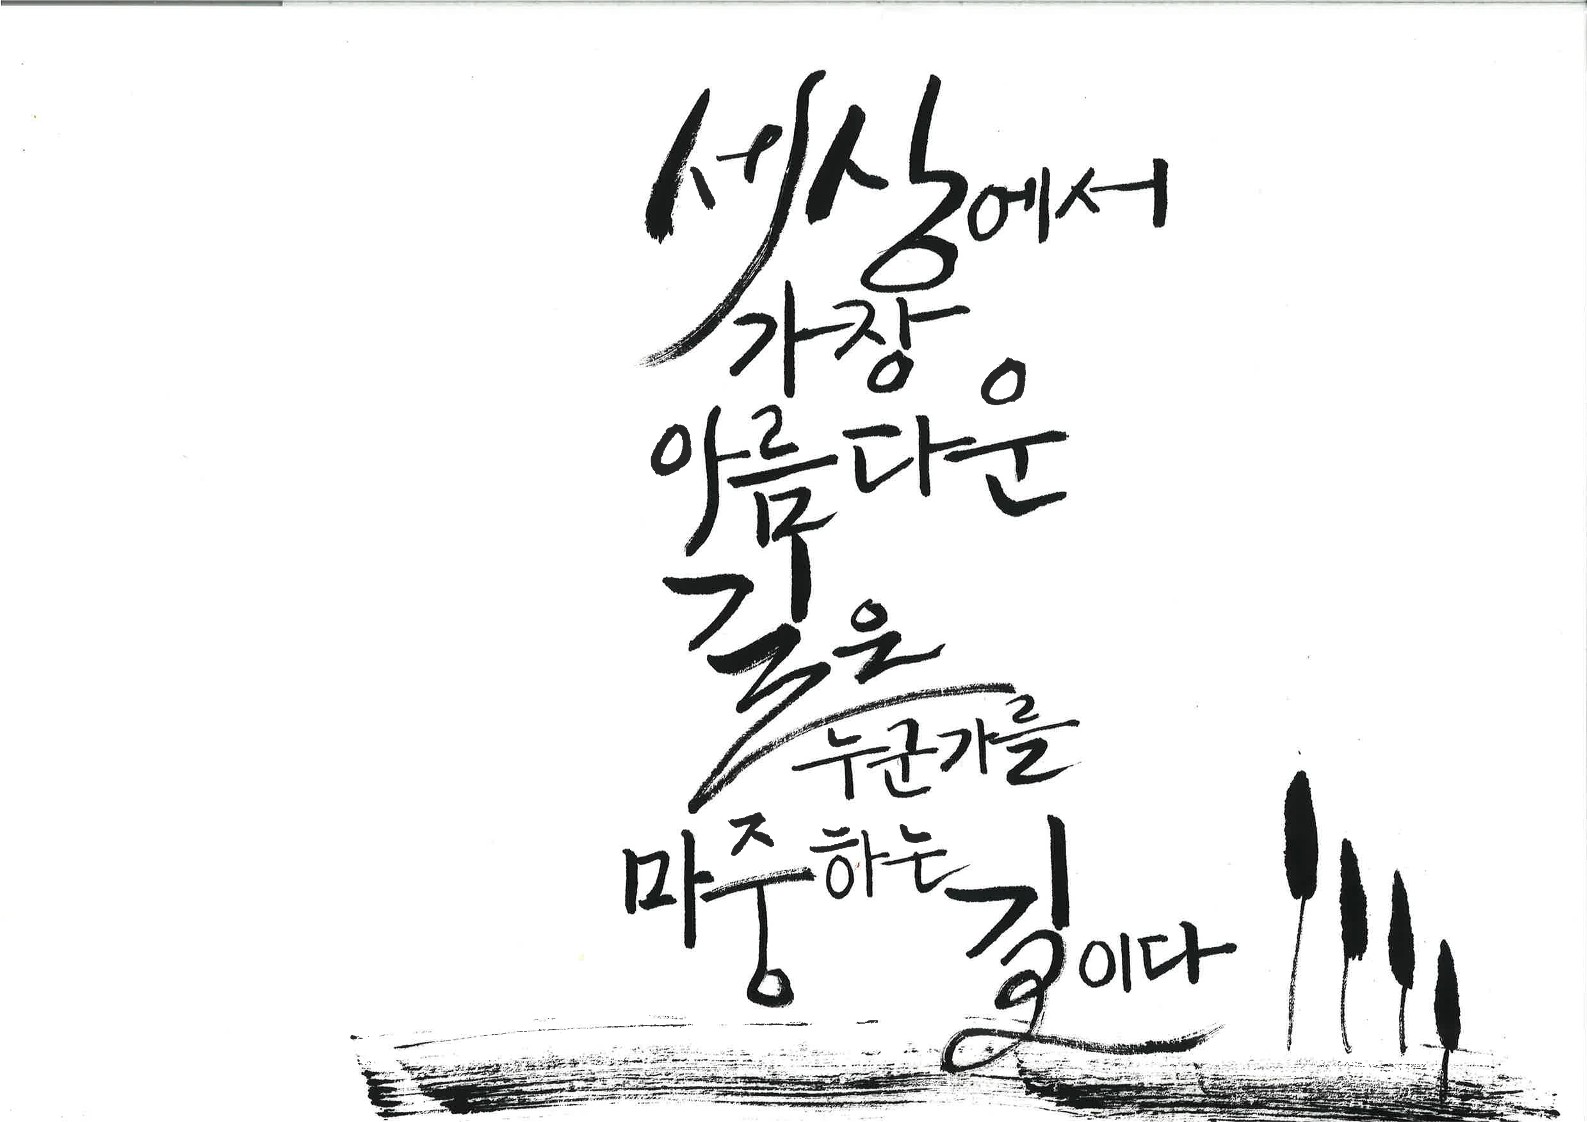 세상에서
가장
아름다운
길은
누군가를
마중하는
길이다